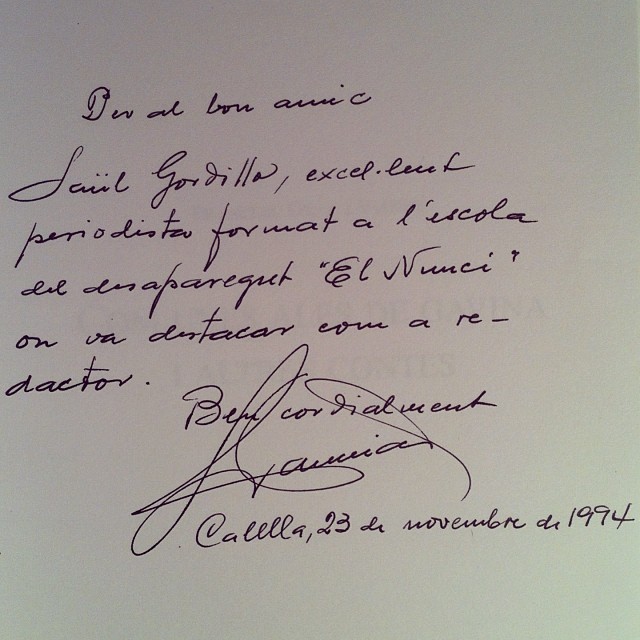 Per al bon amic
Saül Gordillo, excel·lent
periodista format a l'escola
del desaparegut "El Nunci"
on va destacar com a re-
dactor.
Ben cordialment
Calella, 23 de novembre de 1994